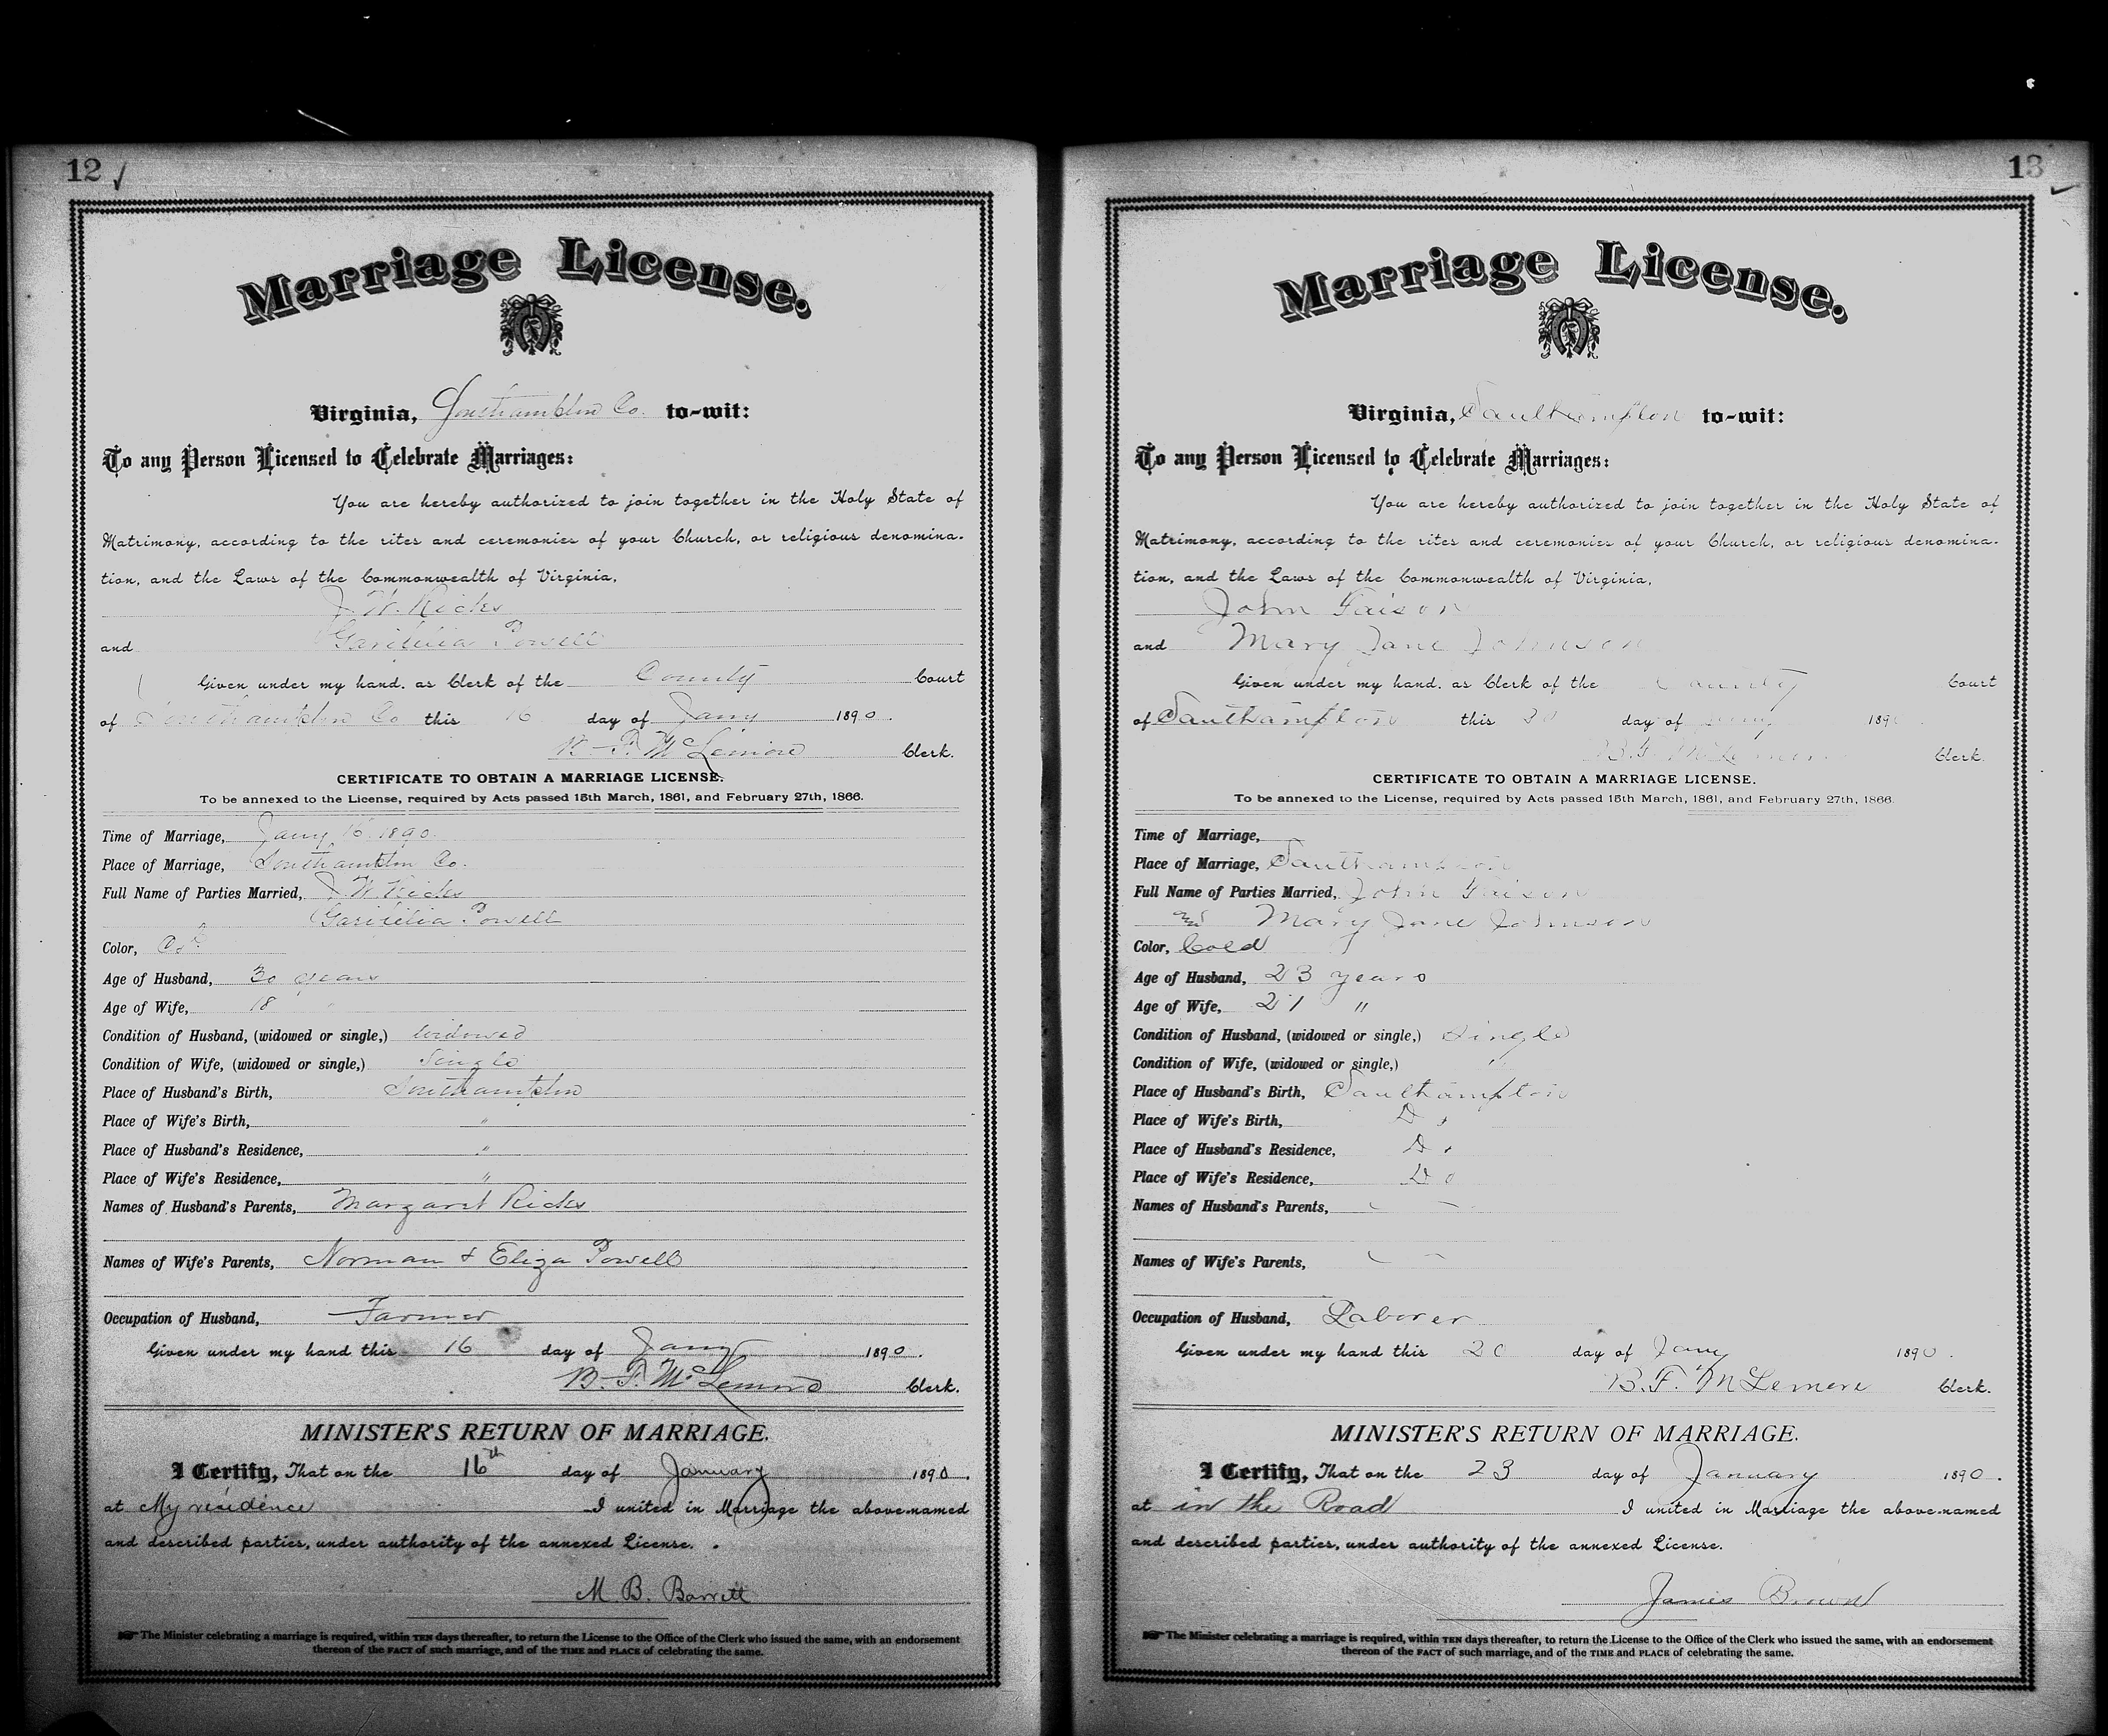 12
Marriage License.
Virginia, Southampton Co. to-wit:
To any Person Licensed to Celebrate Marriages:
You are hereby authorized to join together in the Holy State of
Matrimony, according to the rites and ceremonies of your Church, or religious denomina-
tion, and the Laws of the Commonwealth of Virginia,
J. W. Ricks
and Powell
Given under my hand, as Clerk of the County Court
of Southampton Co this 16 day of Jany 1890.
B. F. McLemore Clerk.
CERTIFICATE TO OBTAIN A MARRIAGE LICENSE.
To be annexed to the License, required by Acts passed 15th March, 1861, and February 27th, 1866.
Time of Marriage, Jany 16. 1890.
Place of Marriage, Southampton Co.
Full Name of Parties Married, J. W. Ricks
Powell
Color, Cold
Age of Husband, 30 years
Age of Wife, 18 "
Condition of Husband, (widowed or single,) Widowed
Condition of Wife, (widowed or single,) Single
Place of Husband's Birth, Southampton
Place of Wife's Birth, "
Place of Husband's Residence, "
Place of Wife's Residence, "
Names of Husband's Parents, Margaret Ricks
Names of Wife's Parents, Norman & Eliza Powell
Occupation of Husband, Farmer
Given under my hand this 16 day of Jany 1890.
B. F. McLemore Clerk.
MINISTER'S RETURN OF MARRIAGE.
I Certify, That on the 16th day of January 1890.
at My residence I united in Marriage the above-named
and described parties, under authority of the annexed License.
M. B. Barrett
The Minister celebrating a marriage is required, within TEN days thereafter, to return the License to the Office of the Clerk who issued the same, with an endorsement
thereon of the FACT of such marriage, and of the TIME and PLACE of celebrating the same.
13
Marriage License.
Virginia, Southampton to-wit:
To any Person Licensed to Celebrate Marriages:
You are hereby authorized to join together in the Holy State of
Matrimony, according to the rites and ceremonies of your Church, or religious denomina-
tion, and the Laws of the Commonwealth of Virginia,
John Faison
and Mary Jane Johnson
Given under my hand, as Clerk of the County Court
of Southampton this 20 day of Jany 1890
B. F. McLemore Clerk.
CERTIFICATE TO OBTAIN A MARRIAGE LICENSE.
To be annexed to the License, required by Acts passed 15th March, 1861, and February 27th, 1866.
Time of Marriage,
Place of Marriage, Southampton
Full Name of Parties Married, John Faison
and Mary Jane Johnson
Color, Cold
Age of Husband, 23 years
Age of Wife, 21 "
Condition of Husband, (widowed or single,) Single
Condition of Wife, (widowed or single,) "
Place of Husband's Birth, Southampton
Place of Wife's Birth, Do
Place of Husband's Residence, Do
Place of Wife's Residence, Do
Names of Husband's Parents,
Names of Wife's Parents,
Occupation of Husband, Laborer
Given under my hand this 20 day of Jany 1890.
B. F. McLemore Clerk.
MINISTER'S RETURN OF MARRIAGE.
I Certify, That on the 23 day of January 1890.
at in the Road I united in Marriage the above-named
and described parties, under authority of the annexed License.
James Brown
The Minister celebrating a marriage is required, within TEN days thereafter, to return the License to the Office of the Clerk who issued the same, with an endorsement
thereon of the FACT of such marriage, and of the TIME and PLACE of celebrating the same.